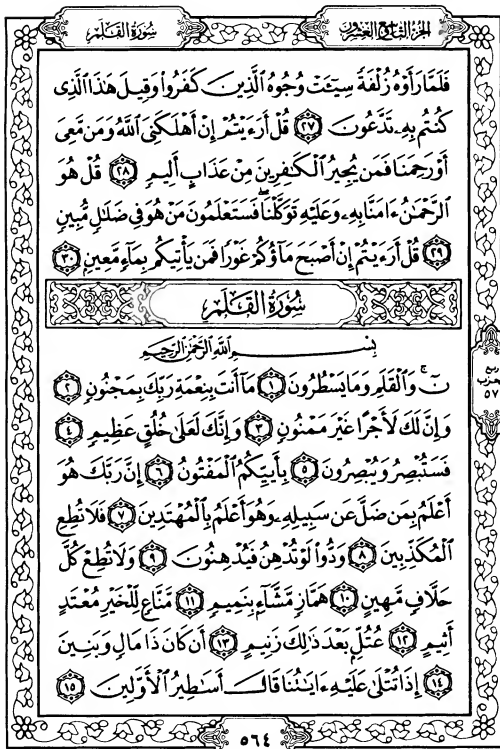 الجزء التاسع والعشرون
سُورَةُ القَلَمِ
فَلَمَّا رَأَوْهُ زُلْفَةً سِيٓـَٔتْ وُجُوهُ ٱلَّذِينَ كَفَرُوا۟ وَقِيلَ هَٰذَا ٱلَّذِى
كُنتُم بِهِۦ تَدَّعُونَ ٢٧ قُلْ أَرَءَيْتُمْ إِنْ أَهْلَكَنِىَ ٱللَّهُ وَمَن مَّعِىَ
أَوْ رَحِمَنَا فَمَن يُجِيرُ ٱلْكَٰفِرِينَ مِنْ عَذَابٍ أَلِيمٍ ٢٨ قُلْ هُوَ
ٱلرَّحْمَٰنُ ءَامَنَّا بِهِۦ وَعَلَيْهِ تَوَكَّلْنَا ۖ فَسَتَعْلَمُونَ مَنْ هُوَ فِى ضَلَٰلٍ مُّبِينٍ
٢٩ قُلْ أَرَءَيْتُمْ إِنْ أَصْبَحَ مَآؤُكُمْ غَوْرًا فَمَن يَأْتِيكُم بِمَآءٍ مَّعِينٍۭ ٣٠
سُورَةُ القَلَمِ
بِسْمِ ٱللَّهِ ٱلرَّحْمَٰنِ ٱلرَّحِيمِ
نٓ ۚ وَٱلْقَلَمِ وَمَا يَسْطُرُونَ ١ مَآ أَنتَ بِنِعْمَةِ رَبِّكَ بِمَجْنُونٍ ٢
وَإِنَّ لَكَ لَأَجْرًا غَيْرَ مَمْنُونٍ ٣ وَإِنَّكَ لَعَلَىٰ خُلُقٍ عَظِيمٍ ٤
فَسَتُبْصِرُ وَيُبْصِرُونَ ٥ بِأَييِّكُمُ ٱلْمَفْتُونُ ٦ إِنَّ رَبَّكَ هُوَ
أَعْلَمُ بِمَن ضَلَّ عَن سَبِيلِهِۦ وَهُوَ أَعْلَمُ بِٱلْمُهْتَدِينَ ٧ فَلَا تُطِعِ
ٱلْمُكَذِّبِينَ ٨ وَدُّوا۟ لَوْ تُدْهِنُ فَيُدْهِنُونَ ٩ وَلَا تُطِعْ كُلَّ
حَلَّافٍ مَّهِينٍ ١٠ هَمَّازٍ مَّشَّآءٍۭ بِنَمِيمٍ ١١ مَّنَّاعٍ لِّلْخَيْرِ مُعْتَدٍ
أَثِيمٍ ١٢ عُتُلٍّۭ بَعْدَ ذَٰلِكَ زَنِيمٍ ١٣ أَن كَانَ ذَا مَالٍ وَبَنِينَ
١٤ إِذَا تُتْلَىٰ عَلَيْهِ ءَايَٰتُنَا قَالَ أَسَٰطِيرُ ٱلْأَوَّلِينَ ١٥
ربع
حزب
٥٧
٥٦٤